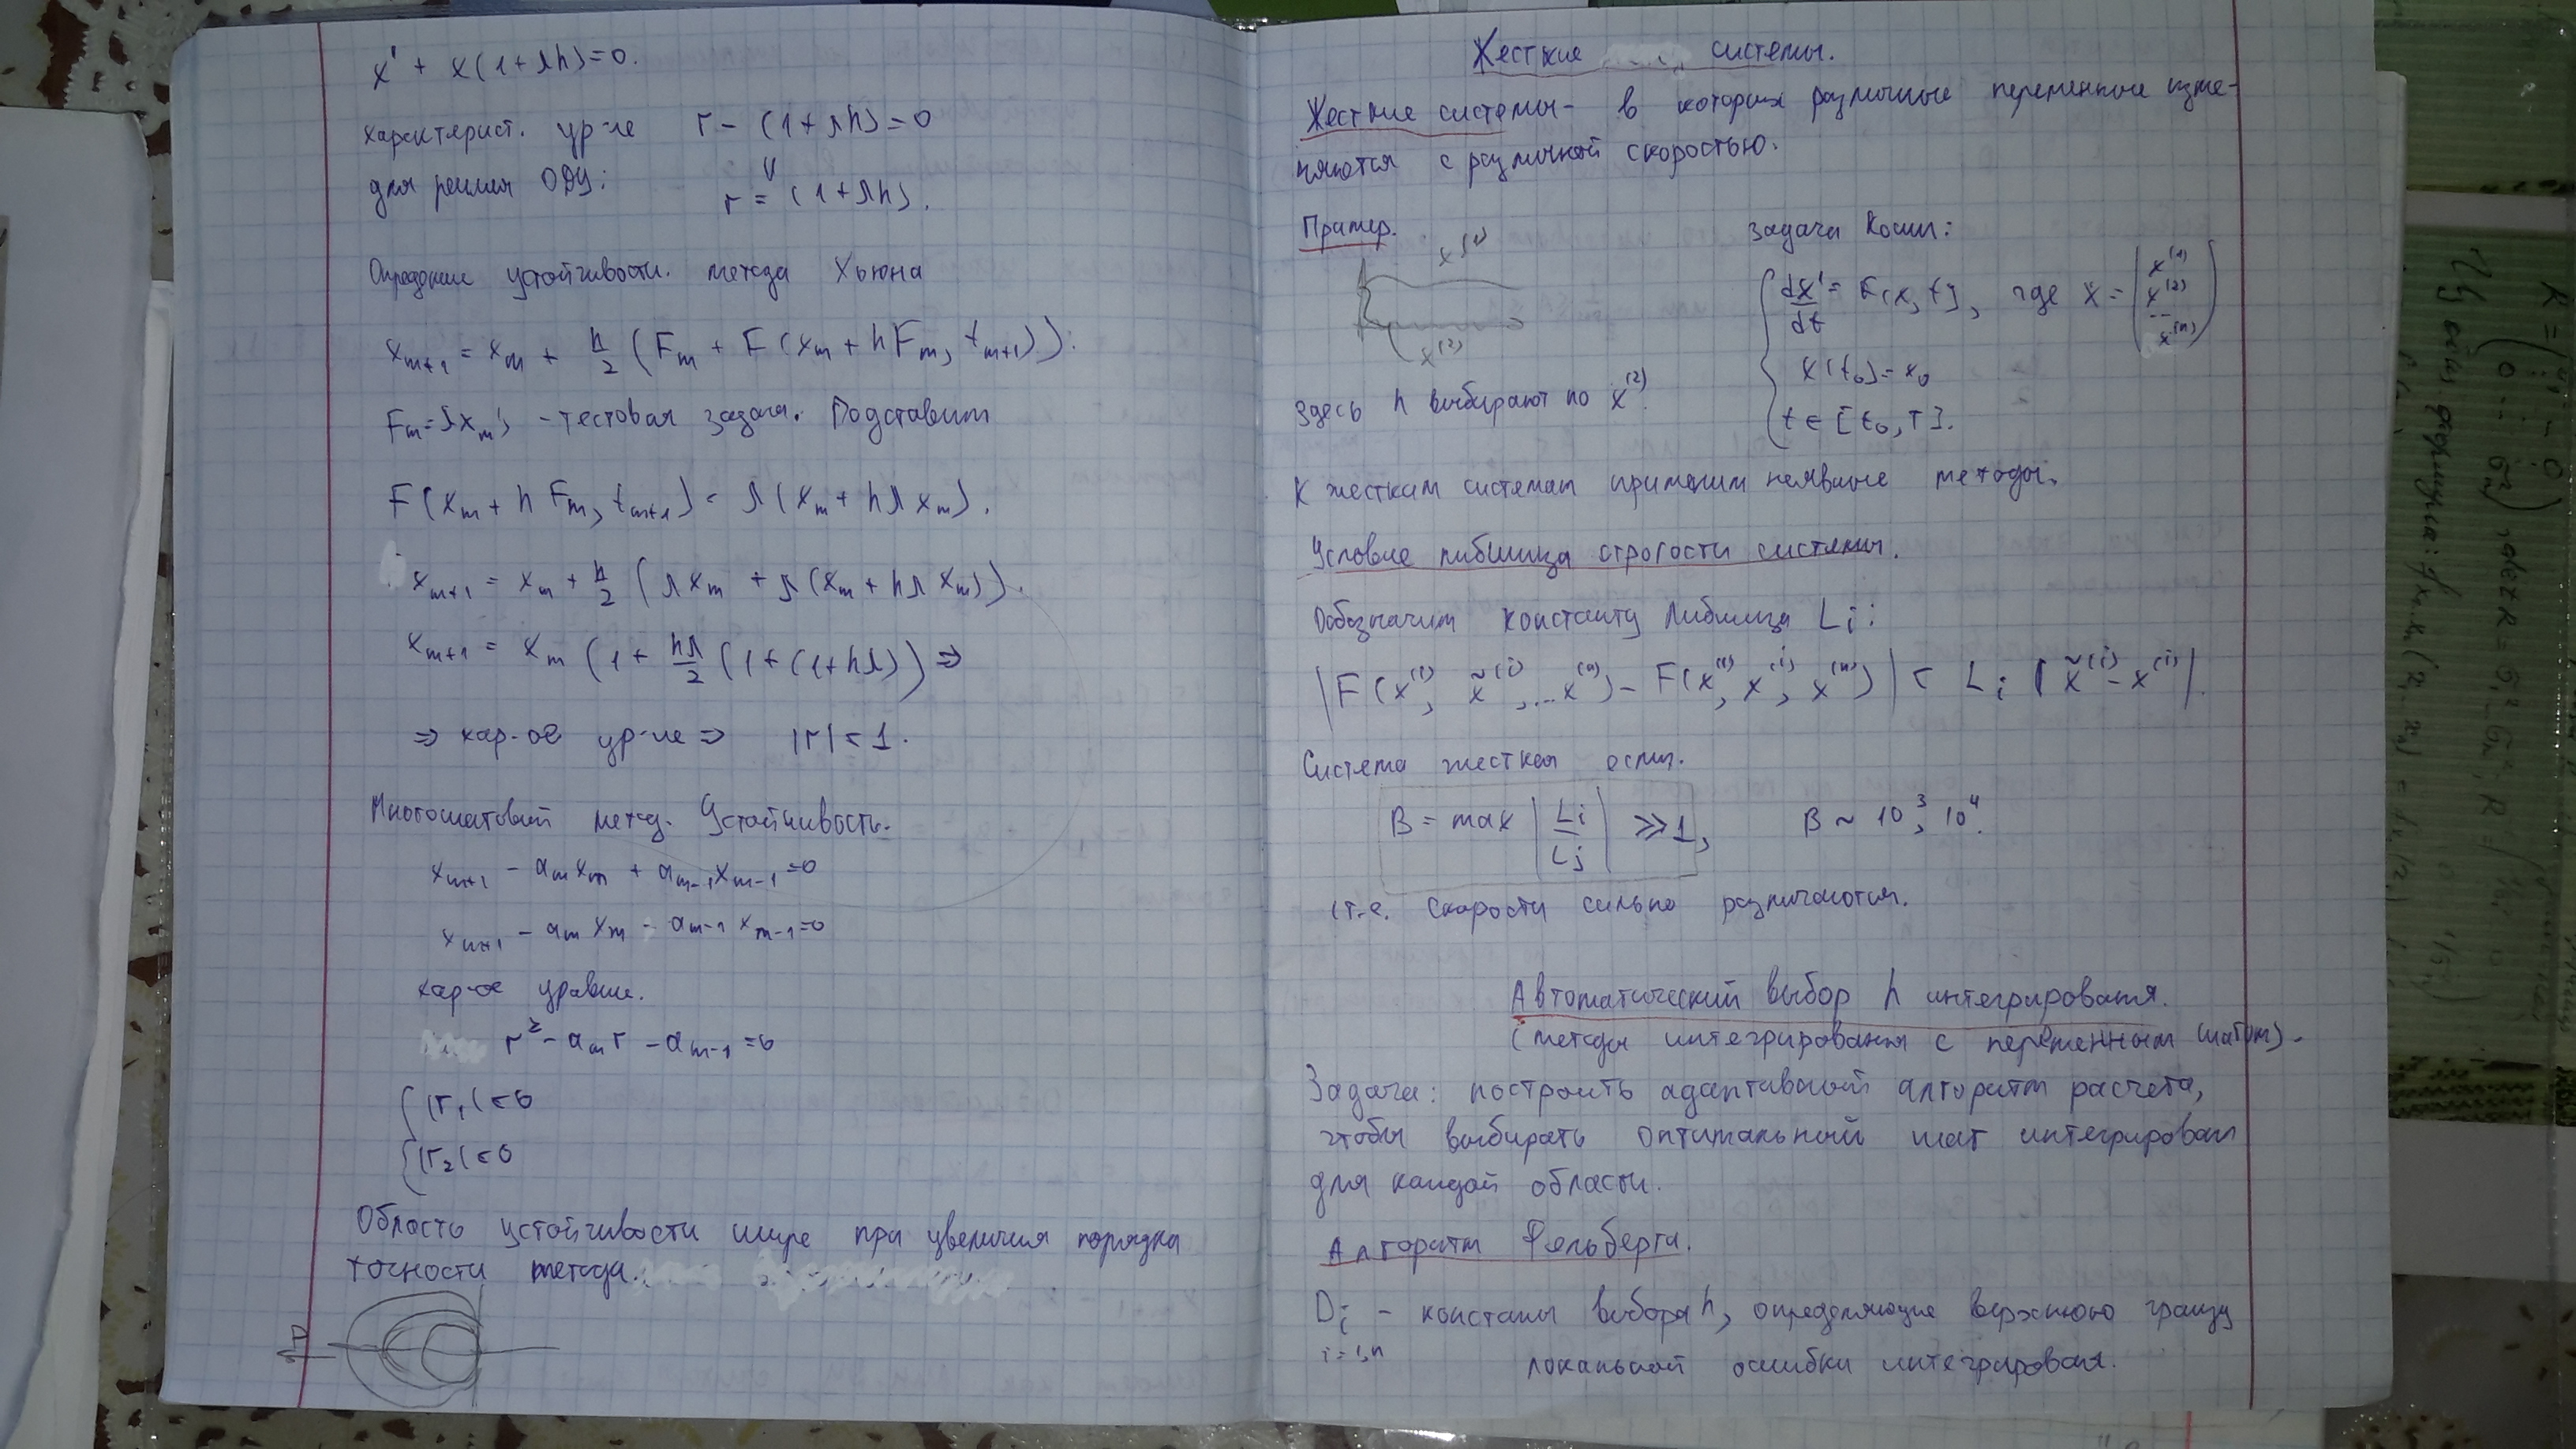 x' + x(1+λh)=0.
характерист. ур-ие r - (1+λh)=0
для решения ОДУ: r = (1+λh).
Определение устойчивости метода Хьюна
x_{m+1} = x_m + h/2 (F_m + F(x_m + hF_m, t_{m+1})).
F_m = λx_m, - тестовая задача. Подставим
F(x_m + hF_m, t_{m+1}) = λ(x_m + hλx_m).
x_{m+1} = x_m + h/2 (λx_m + λ(x_m + hλx_m)).
x_{m+1} = x_m (1 + hλ/2 (1 + (1+hλ))) ⇒
⇒ хар-ое ур-ие ⇒ |r| < 1.
Многошаговый метод. Устойчивость.
x_{m+1} - a_m x_m + a_{m-1} x_{m-1} = 0
x_{m+1} - a_m x_m - a_{m-1} x_{m-1} = 0
хар-ое уравнение.
r² - a_m r - a_{m-1} = 0
{ |r_1| < 0
{ |r_2| < 0
Область устойчивости шире при увеличении порядка
точности метода.
Жесткие системы.
Жесткие системы - в которых различные переменные изме-
няются с различной скоростью.
Пример. Задача Коши:
x^{(1)}
x^{(2)}
{ dx/dt = F(x, t), где x = (x^{(1)} x^{(2)} ... x^{(n)})
{ x(t_0) = x_0
{ t ∈ [t_0, T].
Здесь h выбирают по x^{(2)}.
К жестким системам применим неявные методы.
Условие Либшица строгости системы.
Обозначим константу Либшица L_i:
|F(x^{(1)}, x̃^{(i)}, ... x^{(n)}) - F(x^{(1)}, x^{(i)}, x^{(n)})| < L_i |x̃^{(i)} - x^{(i)}|.
Система жесткая если.
B = max |L_i / L_j| ≫ 1, B ~ 10³, 10⁴.
(т.е. скорости сильно различаются.
Автоматический выбор h интегрирования.
(методы интегрирования с переменным шагом).
Задача: построить адаптивный алгоритм расчета,
чтобы выбирать оптимальный шаг интегрирован
для каждой области.
Алгоритм Фельберга.
D_i - константы выбора h, определяющие верхнюю границу
i = 1, n локальной ошибки интегрирования.